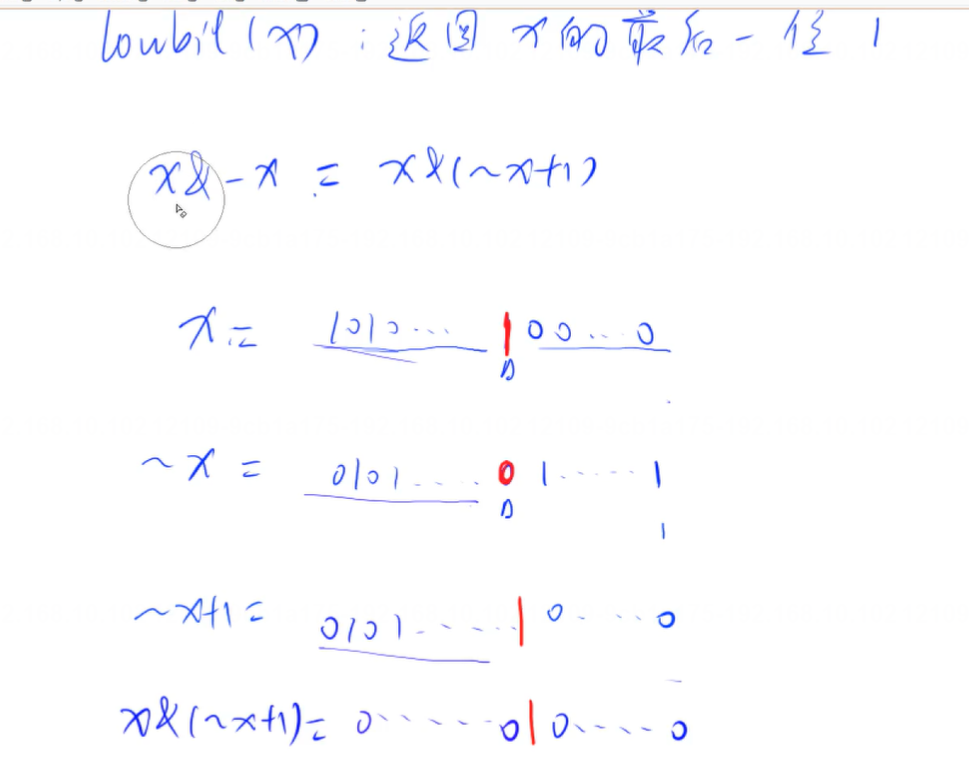 lowbit(x) : 返回 x 的最后一位 1
x&-x = x&(~x+1)
x = 1010... 100...0
~x = 0101.... 01.....1
1
~x+1 = 0101......10....0
x&(~x+1) = 0.....010....0